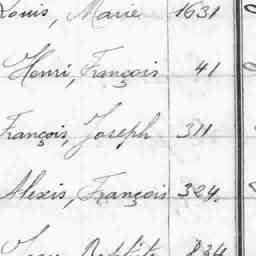 Louis, Marie 1631
Henri, François 41
François, Joseph 311
Alexis, François 324.
Jean Baptiste 834